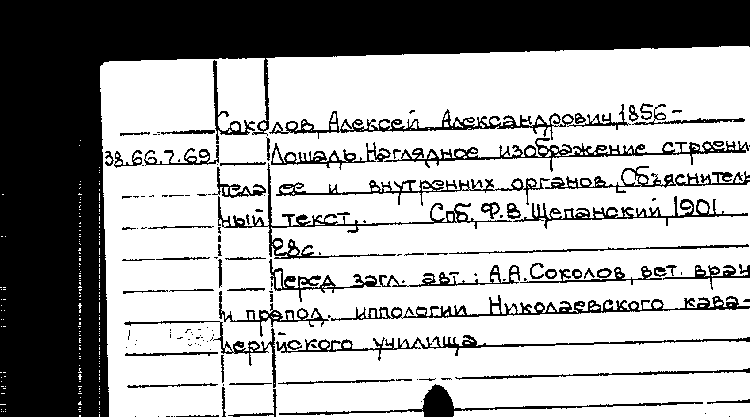 Соколов, Алексей Александрович, 1856-
38.66.7.69. Лошадь. Наглядное изображение строени
тела ее и внутренних органов. [Объяснитель
ный текст]. Спб, Ф.В. Щепанский, 1901.
28с.
Перед загл. авт.: А.А. Соколов, вет. врач
и препод. иппологии Николаевского кава-
лерийского училища.